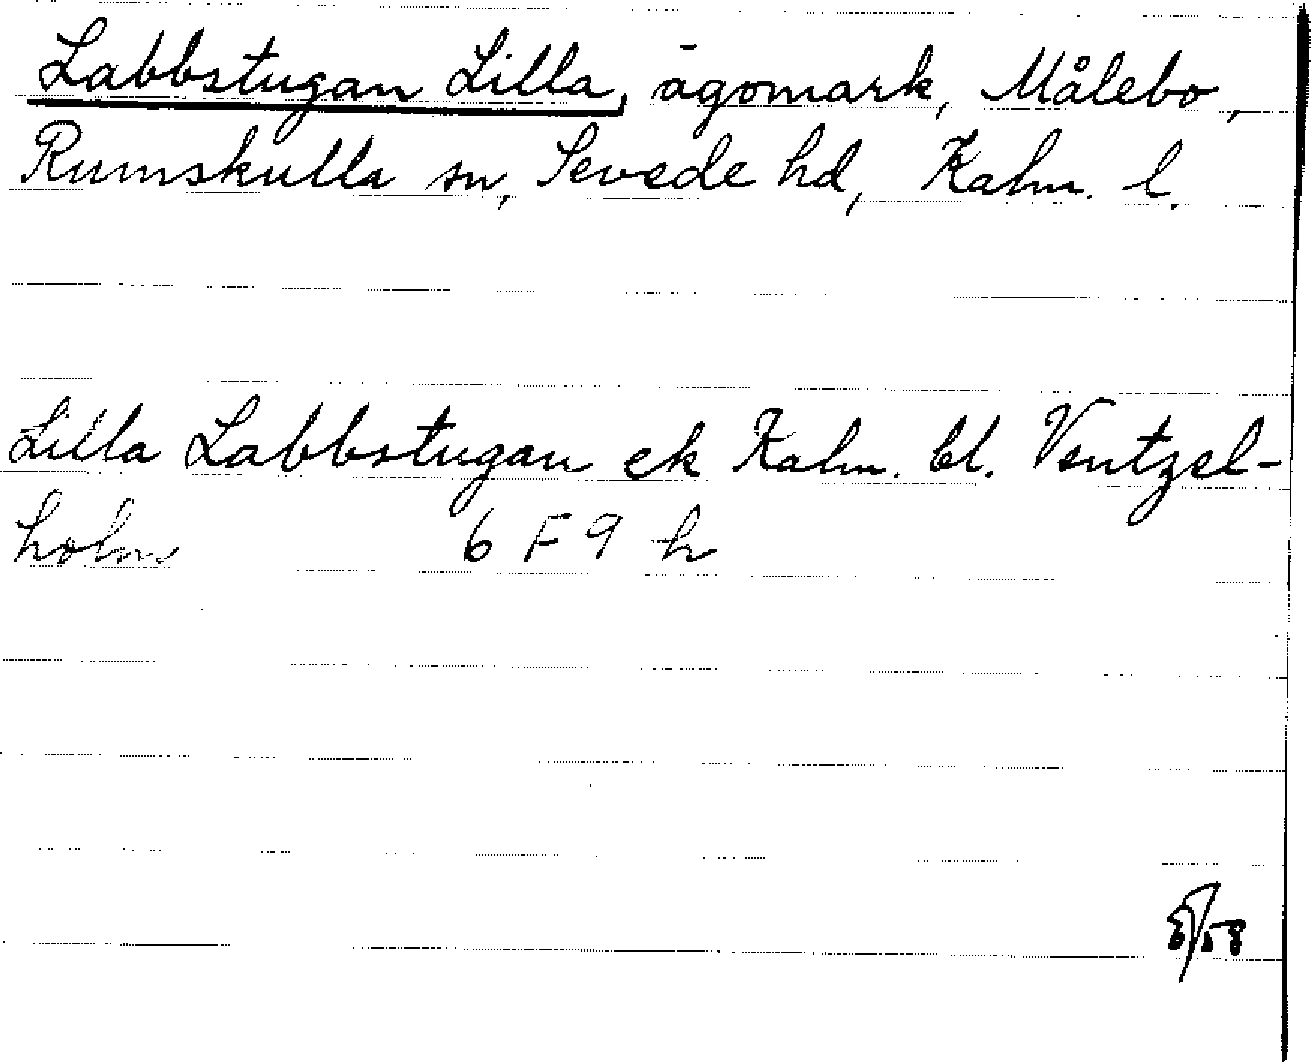 Labbstugan Lilla, ägomark, Målebo,
Rumskulla sn, Sevede hd, Kalm. l.
Lilla Labbstugan ek Kalm. bl. Ventzel-
holm 6 F 9 h
/58